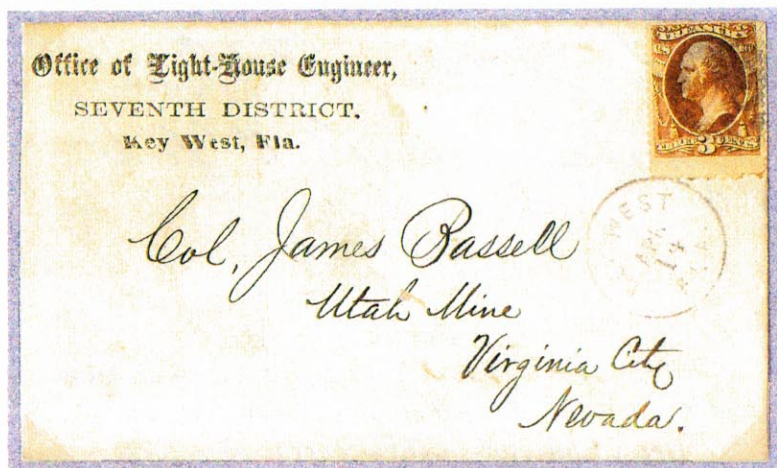 Office of Light-House Engineer,
SEVENTH DISTRICT.
Key West, Fla.
TREASURY
3
WEST
APR
14
FLA
Col, James Bassell
Utah Mine
Virginia City
Nevada.